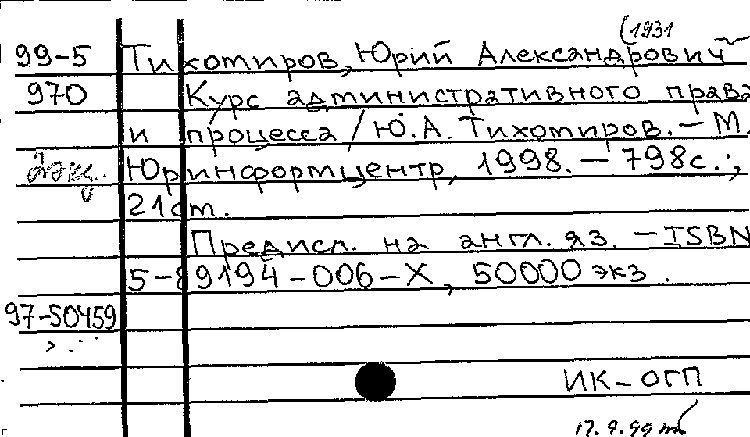 (1931
99-5 Тихомиров, Юрий Александрович
970 Курс административного права
и процесса / Ю.А. Тихомиров. - М.
Юринформцентр, 1998. - 798с.:,
21см.
Предисл. на англ. яз. - ISBN
5-89194-006-X, 50000 экз.
97-50459
ИК-ОГП
17.9.99